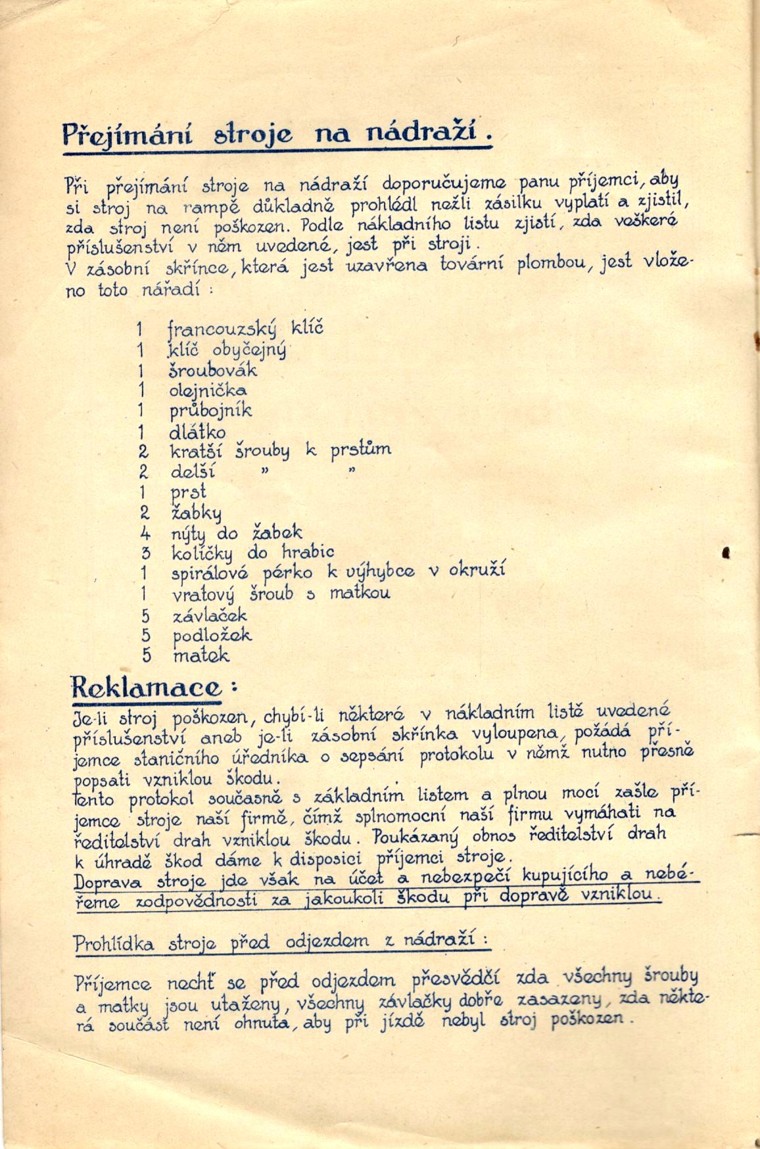 Přejímání stroje na nádraží.
Při přejímání stroje na nádraží doporučujeme panu příjemci, aby
si stroj na rampě důkladně prohlédl nežli zásilku vyplatí a zjistil,
zda stroj není poškozen. Podle nákladního listu zjistí, zda veškeré
příslušenství v něm uvedené, jest při stroji.
V zásobní skřínce, která jest uzavřena tovární plombou, jest vlože-
no toto nářadí :
1 francouzský klíč
1 klíč obyčejný
1 šroubovák
1 olejnička
1 průbojník
1 dlátko
2 kratší šrouby k prstům
2 delší " "
1 prst
2 žabky
4 nýty do žabek
3 kolíčky do hrabic
1 spirálové pérko k výhybce v okruží
1 vratový šroub s matkou
5 závlaček
5 podložek
5 matek
Reklamace :
Je-li stroj poškozen, chybí-li některé v nákladním listě uvedené
příslušenství aneb je-li zásobní skřínka vyloupena, požádá pří-
jemce staničního úředníka o sepsání protokolu v němž nutno přesně
popsati vzniklou škodu.
Tento protokol současně s základním listem a plnou mocí zašle pří-
jemce stroje naší firmě, čímž splnomocní naší firmu vymáhati na
ředitelství drah vzniklou škodu. Poukázaný obnos ředitelství drah
k úhradě škod dáme k disposici příjemci stroje.
Doprava stroje jde však na účet a nebezpečí kupujícího a nebé-
řeme zodpovědnosti za jakoukoli škodu při dopravě vzniklou.
Prohlídka stroje před odjezdem z nádraží :
Příjemce nechť se před odjezdem přesvědčí zda všechny šrouby
a matky jsou utaženy, všechny závlačky dobře zasazeny, zda někte-
rá součást není ohnuta, aby při jízdě nebyl stroj poškozen.